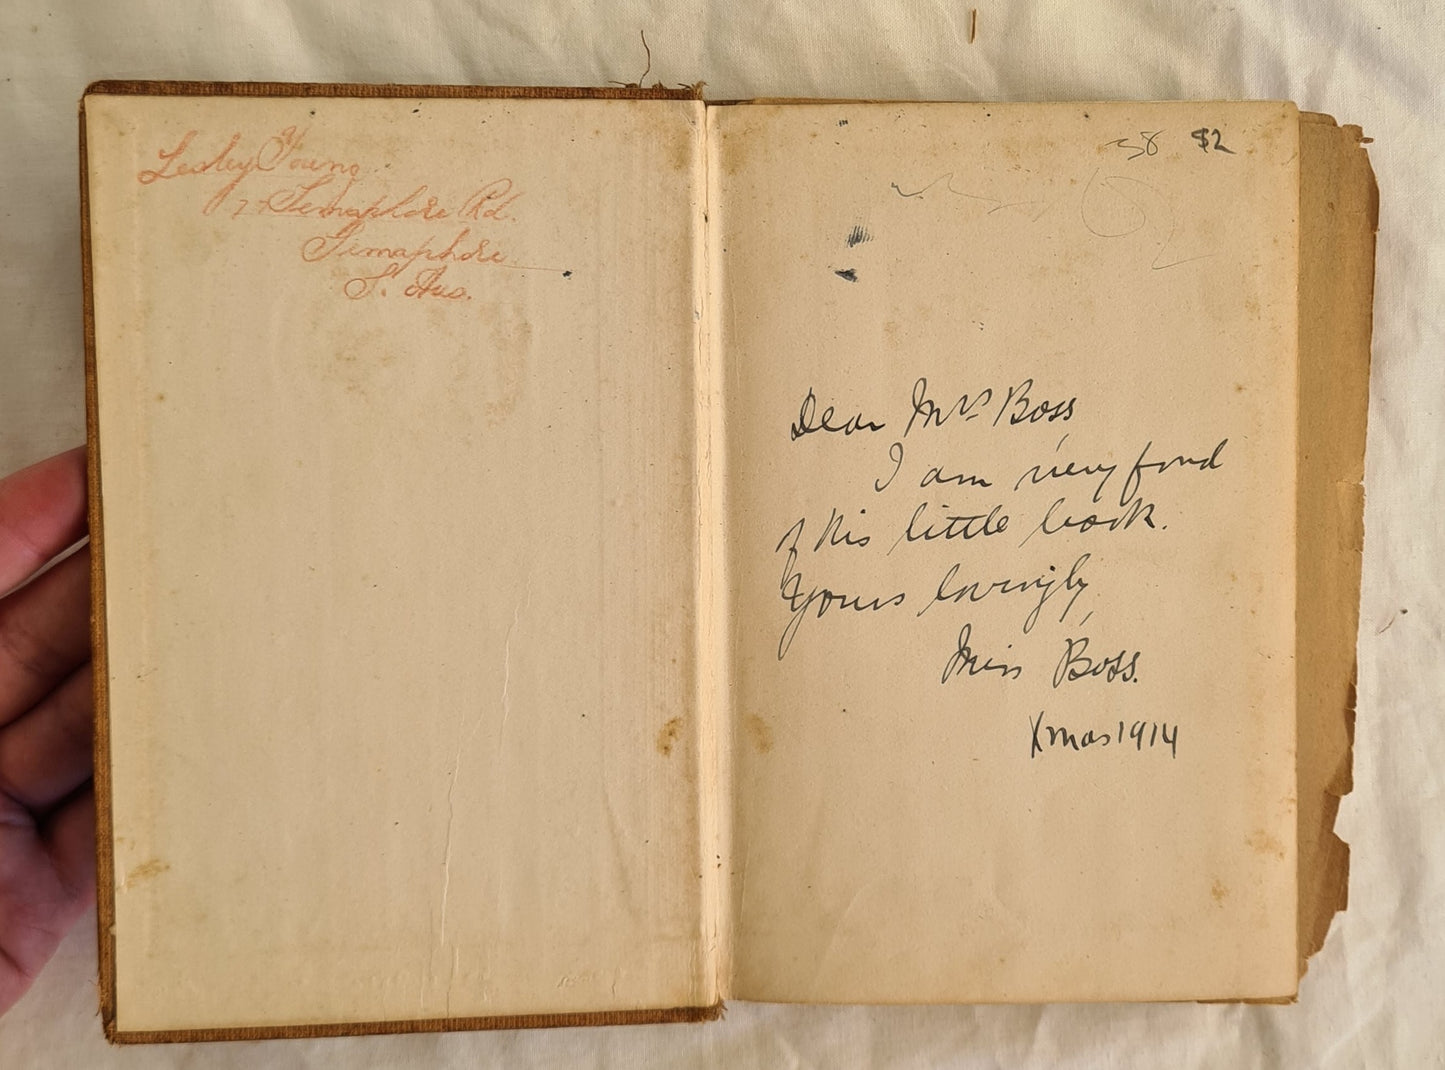 Lesley Young
7 Semaphore Rd.
Semaphore
S. Aus.
58 $2
Dear Mrs Boss,
I am very fond
of this little book.
Yours lovingly,
Miss Boss.
Xmas 1914